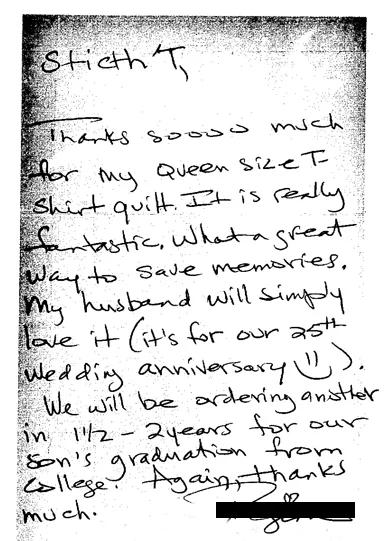 Stitch T,
Thanks soooo much
for my Queen size T-
shirt quilt. It is really
fantastic. What a great
way to save memories.
My husband will simply
love it (it's for our 25th
wedding anniversary).
We will be ordering another
in 1 1/2 - 2 years for our
son's graduation from
college. Again, thanks
much.